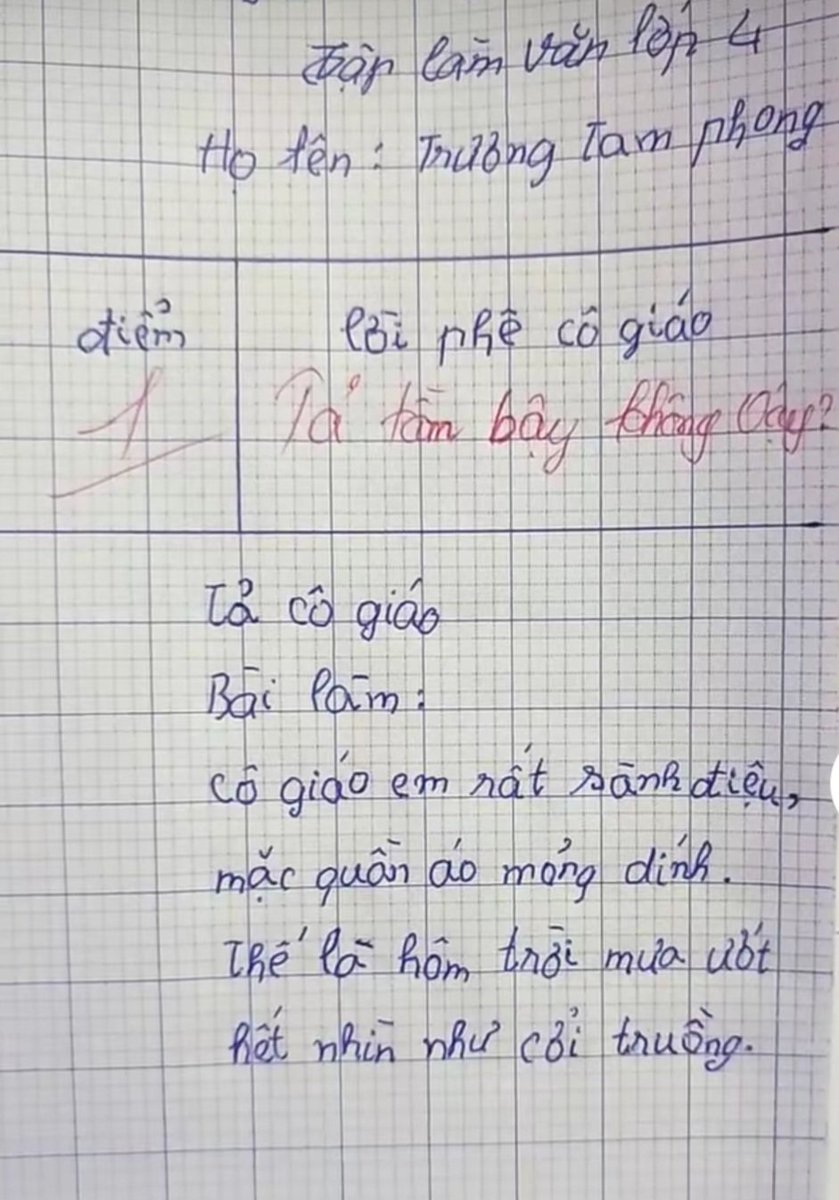 Tập làm văn lớp 4
Họ tên: Trương Tam phong
điểm
lời phê cô giáo
1
Tả tầm bậy không Vậy?
Tả cô giáo
Bài làm:
cô giáo em rất sành điệu,
mặc quần áo mỏng dính.
Thế là hôm trời mưa ướt
hết nhìn như cởi truồng.